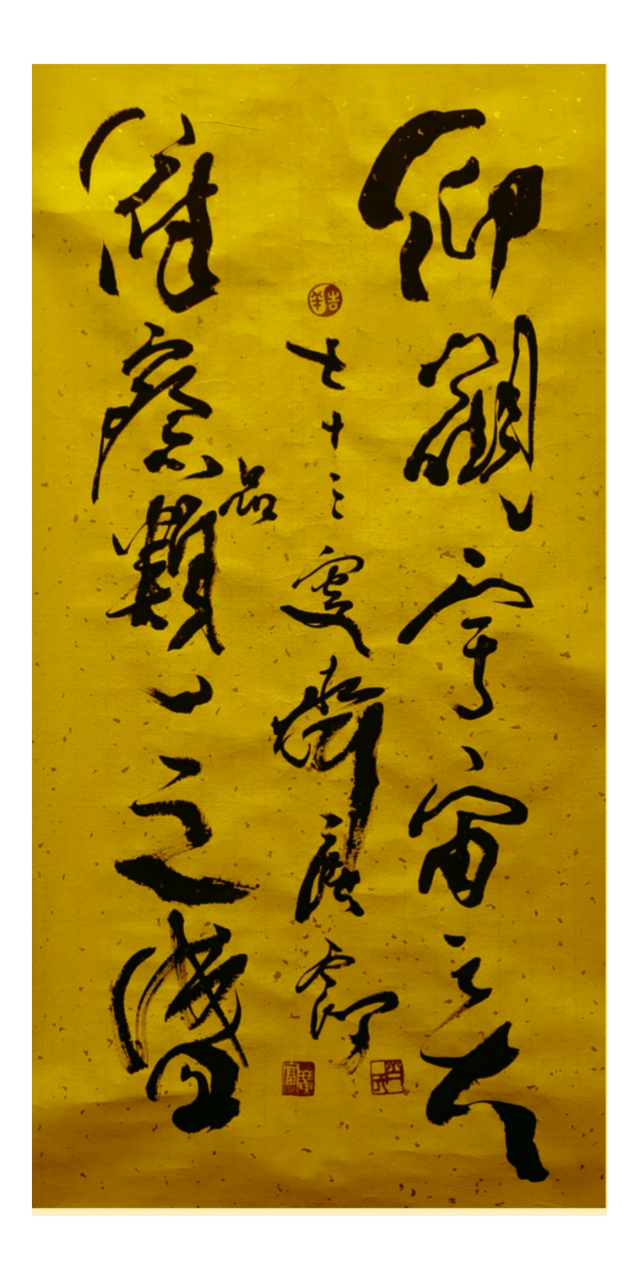 仰觀宇宙之大
俯察品類之盛
七十三叟